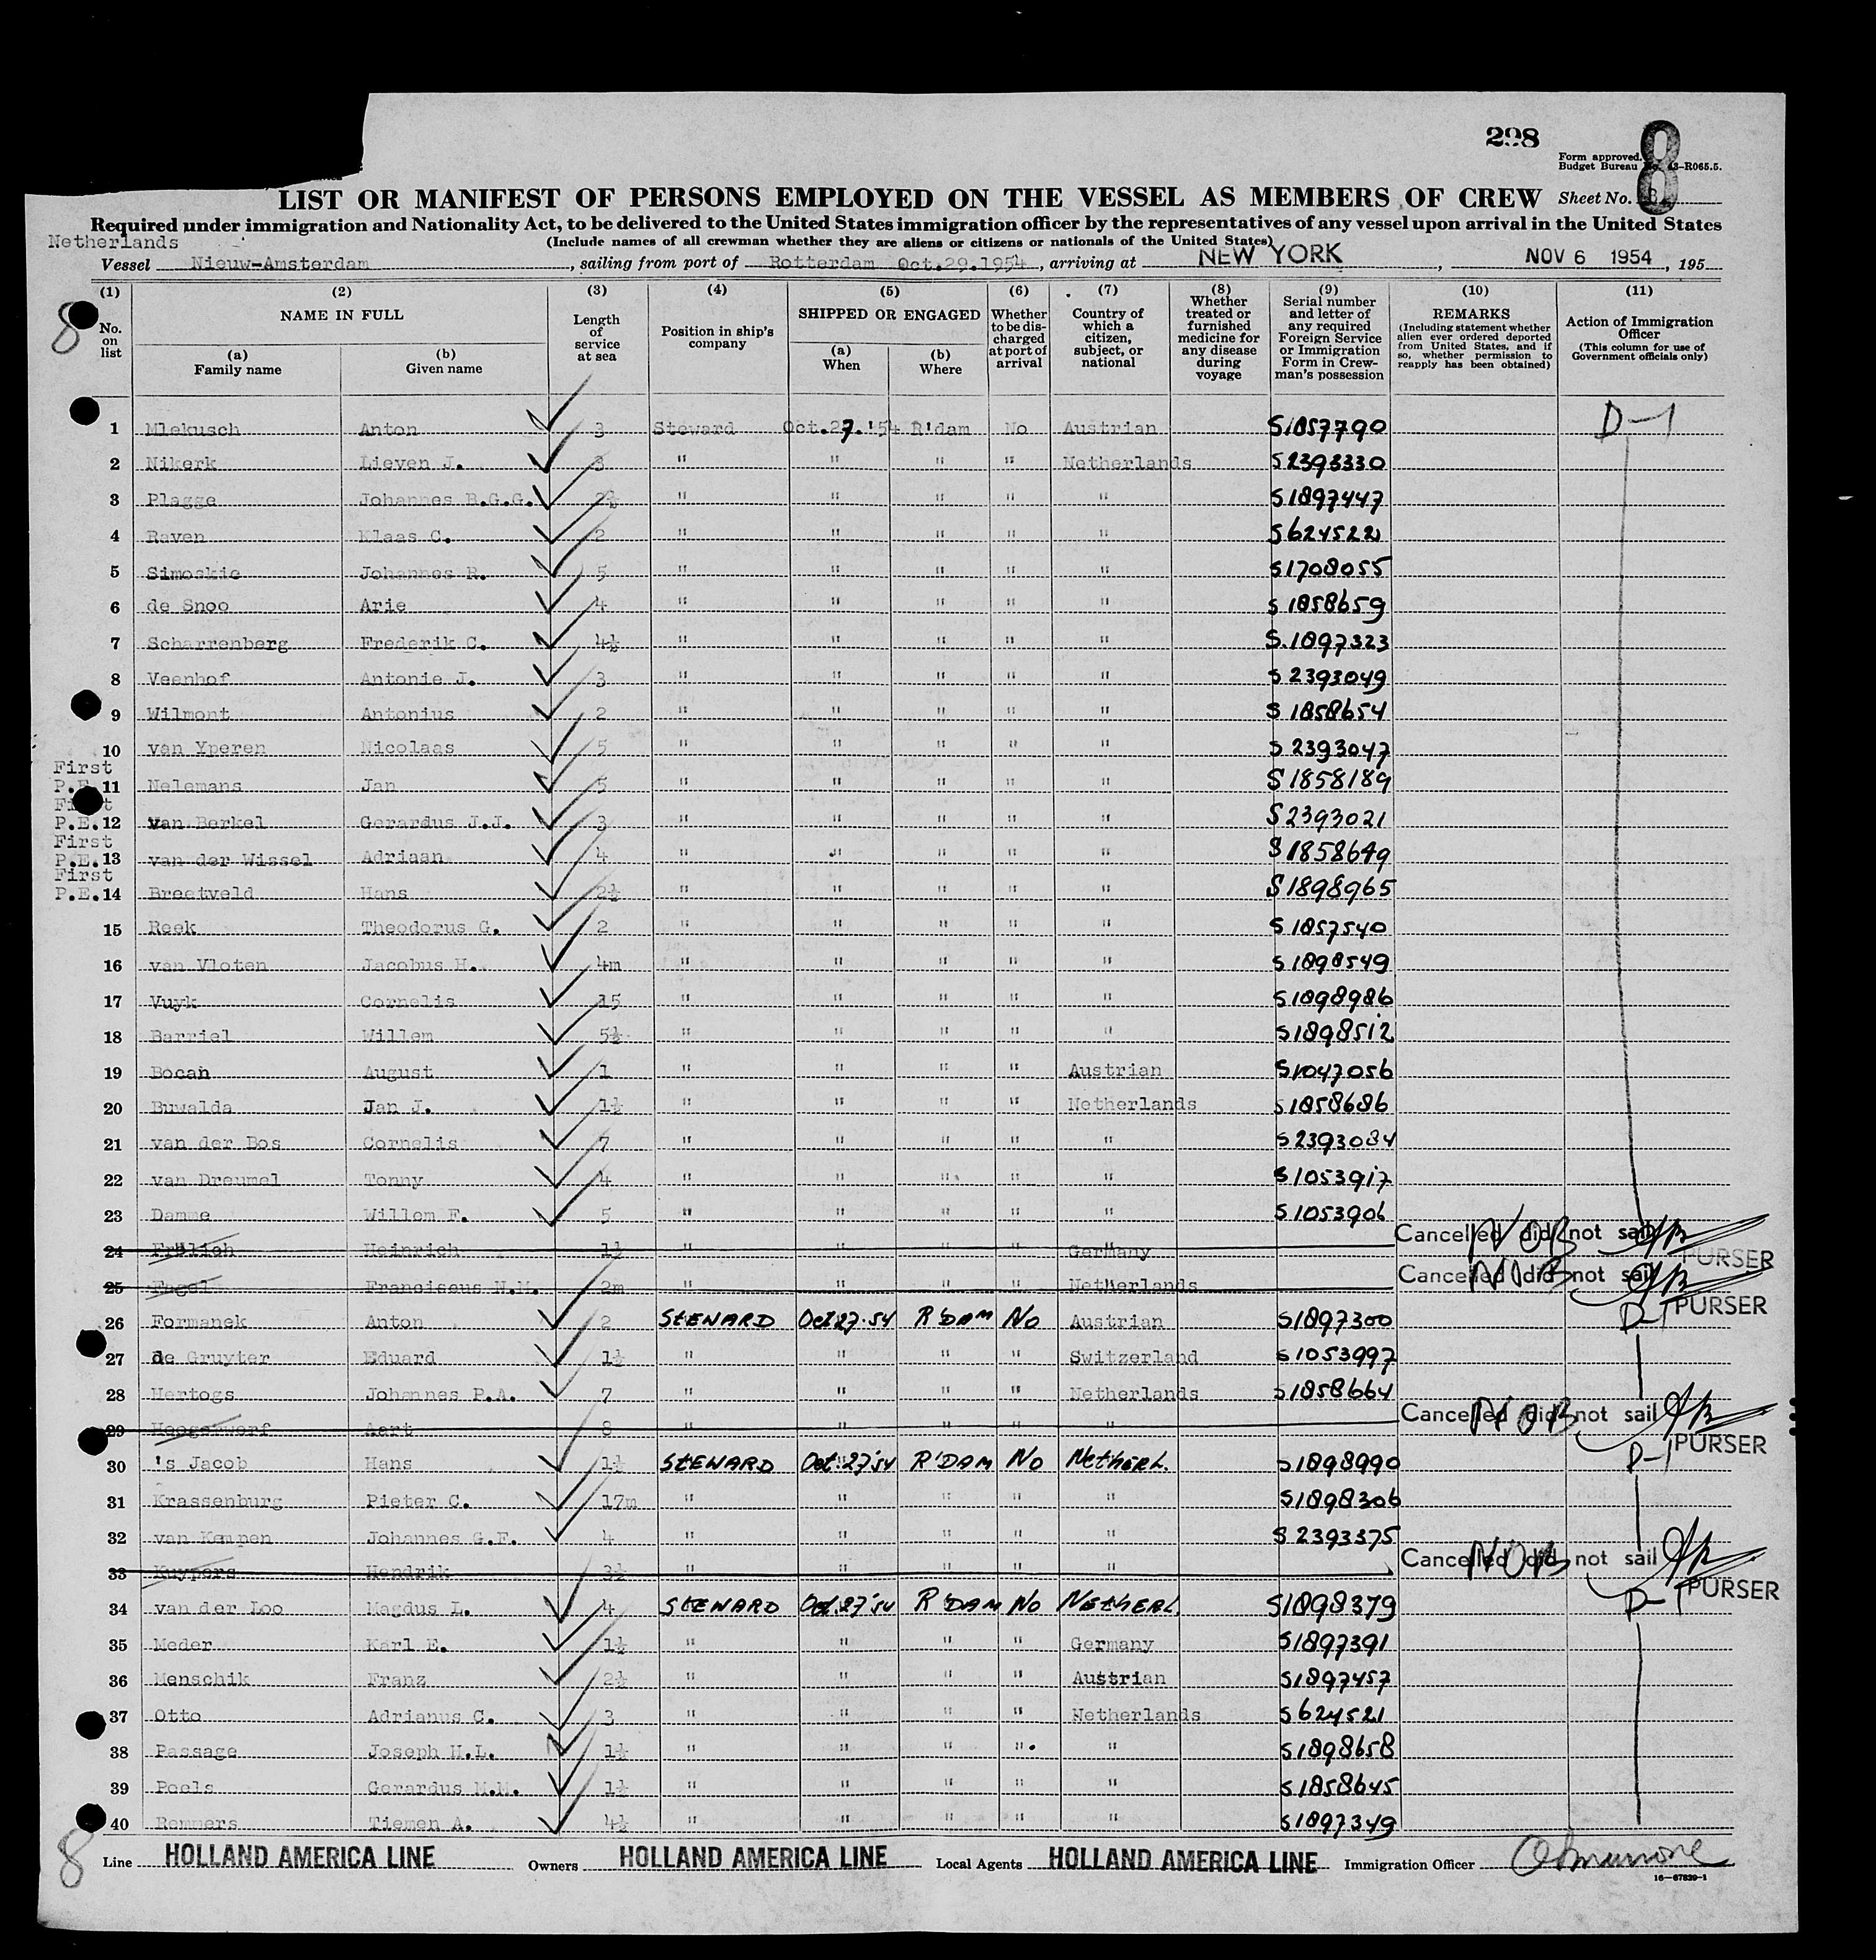 298
Form approved.
Budget Bureau No. 43-R065.5.
8
LIST OR MANIFEST OF PERSONS EMPLOYED ON THE VESSEL AS MEMBERS OF CREW Sheet No. 8
Required under immigration and Nationality Act, to be delivered to the United States immigration officer by the representatives of any vessel upon arrival in the United States
Netherlands (Include names of all crewman whether they are aliens or citizens or nationals of the United States)
Vessel Nieuw-Amsterdam, sailing from port of Rotterdam Oct.29.1954, arriving at NEW YORK, NOV 6 1954, 195
8
(1) No. on list
(2) NAME IN FULL (a) Family name (b) Given name
(3) Length of service at sea
(4) Position in ship's company
(5) SHIPPED OR ENGAGED (a) When (b) Where
(6) Whether to be discharged at port of arrival
(7) Country of which a citizen, subject, or national
(8) Whether treated or furnished medicine for any disease during voyage
(9) Serial number and letter of any required Foreign Service or Immigration Form in Crewman's possession
(10) REMARKS (Including statement whether alien ever ordered deported from United States, and if so, whether permission to reapply has been obtained)
(11) Action of Immigration Officer (This column for use of Government officials only)
1 Mlekusch Anton 3 Steward Oct.27.'54 R'dam No Austrian S1857790 D-1
2 Nikerk Lieven J. 3 " " " " Netherlands S2393330
3 Plagge Johannes B.G.G. 2½ " " " " " S1897447
4 Raven Klaas C. 2 " " " " " S624522
5 Simoskie Johannes R. 5 " " " " " S1708055
6 de Snoo Arie 4 " " " " " S1858659
7 Scharrenberg Frederik C. 4½ " " " " " S.1897323
8 Veenhof Antonie J. 3 " " " " " S2393049
9 Wilmont Antonius 2 " " " " " S1858654
10 van Yperen Nicolaas 5 " " " " " S2393047
First P.E. 11 Nelemans Jan 5 " " " " " S1858189
First P.E. 12 van Berkel Gerardus J.J. 3 " " " " " S2393021
First P.E. 13 van der Wissel Adriaan 4 " " " " " S1858649
First P.E. 14 Breetveld Hans 2½ " " " " " S1898965
15 Reek Theodorus G. 2 " " " " " S1857540
16 van Vloten Jacobus H. 4m " " " " " S1898549
17 Vuyk Cornelis 15 " " " " " S1898986
18 Barriel Willem 5½ " " " " " S1898512
19 Bocan August 1 " " " " Austrian S1047056
20 Buwalda Jan J. 1½ " " " " Netherlands S1858686
21 van der Bos Cornelis 7 " " " " " S2393084
22 van Dreumel Tonny 4 " " " " " S1053917
23 Damme Willem F. 5 " " " " " S1053906
24 Frölich Heinrich 1½ " " " " Germany Cancelled did not sail NOB PURSER
25 Fagel Franciscus N.M. 2m " " " " Netherlands Cancelled did not sail NOB PURSER
26 Formanek Anton 2 STEWARD Oct 27.54 R'DAM No Austrian S1897300 D-1
27 de Gruyter Eduard 1½ " " " " Switzerland S1053997
28 Hertogs Johannes P.A. 7 " " " " Netherlands S1858664
29 Hoogerwerf Aart 8 " " " " " Cancelled did not sail NOB PURSER
30 's Jacob Hans 1½ STEWARD Oct.27'54 R'DAM No NETHERL. S1898990 D-1
31 Krassenburg Pieter C. 17m " " " " " S1898306
32 van Kempen Johannes G.F. 4 " " " " " S2393375
33 Kuypers Hendrik 3½ " " " " " Cancelled did not sail NOB PURSER
34 van der Loo Magdus L. 4 STEWARD Oct.27'54 R'DAM No NETHERL. S1898379 D-1
35 Meder Karl E. 1½ " " " " Germany S1897391
36 Menschik Franz 2½ " " " " Austrian S1897457
37 Otto Adrianus C. 3 " " " " Netherlands S624521
38 Passage Joseph H.L. 1½ " " " " " S1898658
39 Peels Gerardus M.M. 1½ " " " " " S1858645
40 Remmers Tiemen A. 4½ " " " " " S1897349
8 Line HOLLAND AMERICA LINE Owners HOLLAND AMERICA LINE Local Agents HOLLAND AMERICA LINE Immigration Officer
16-67839-1